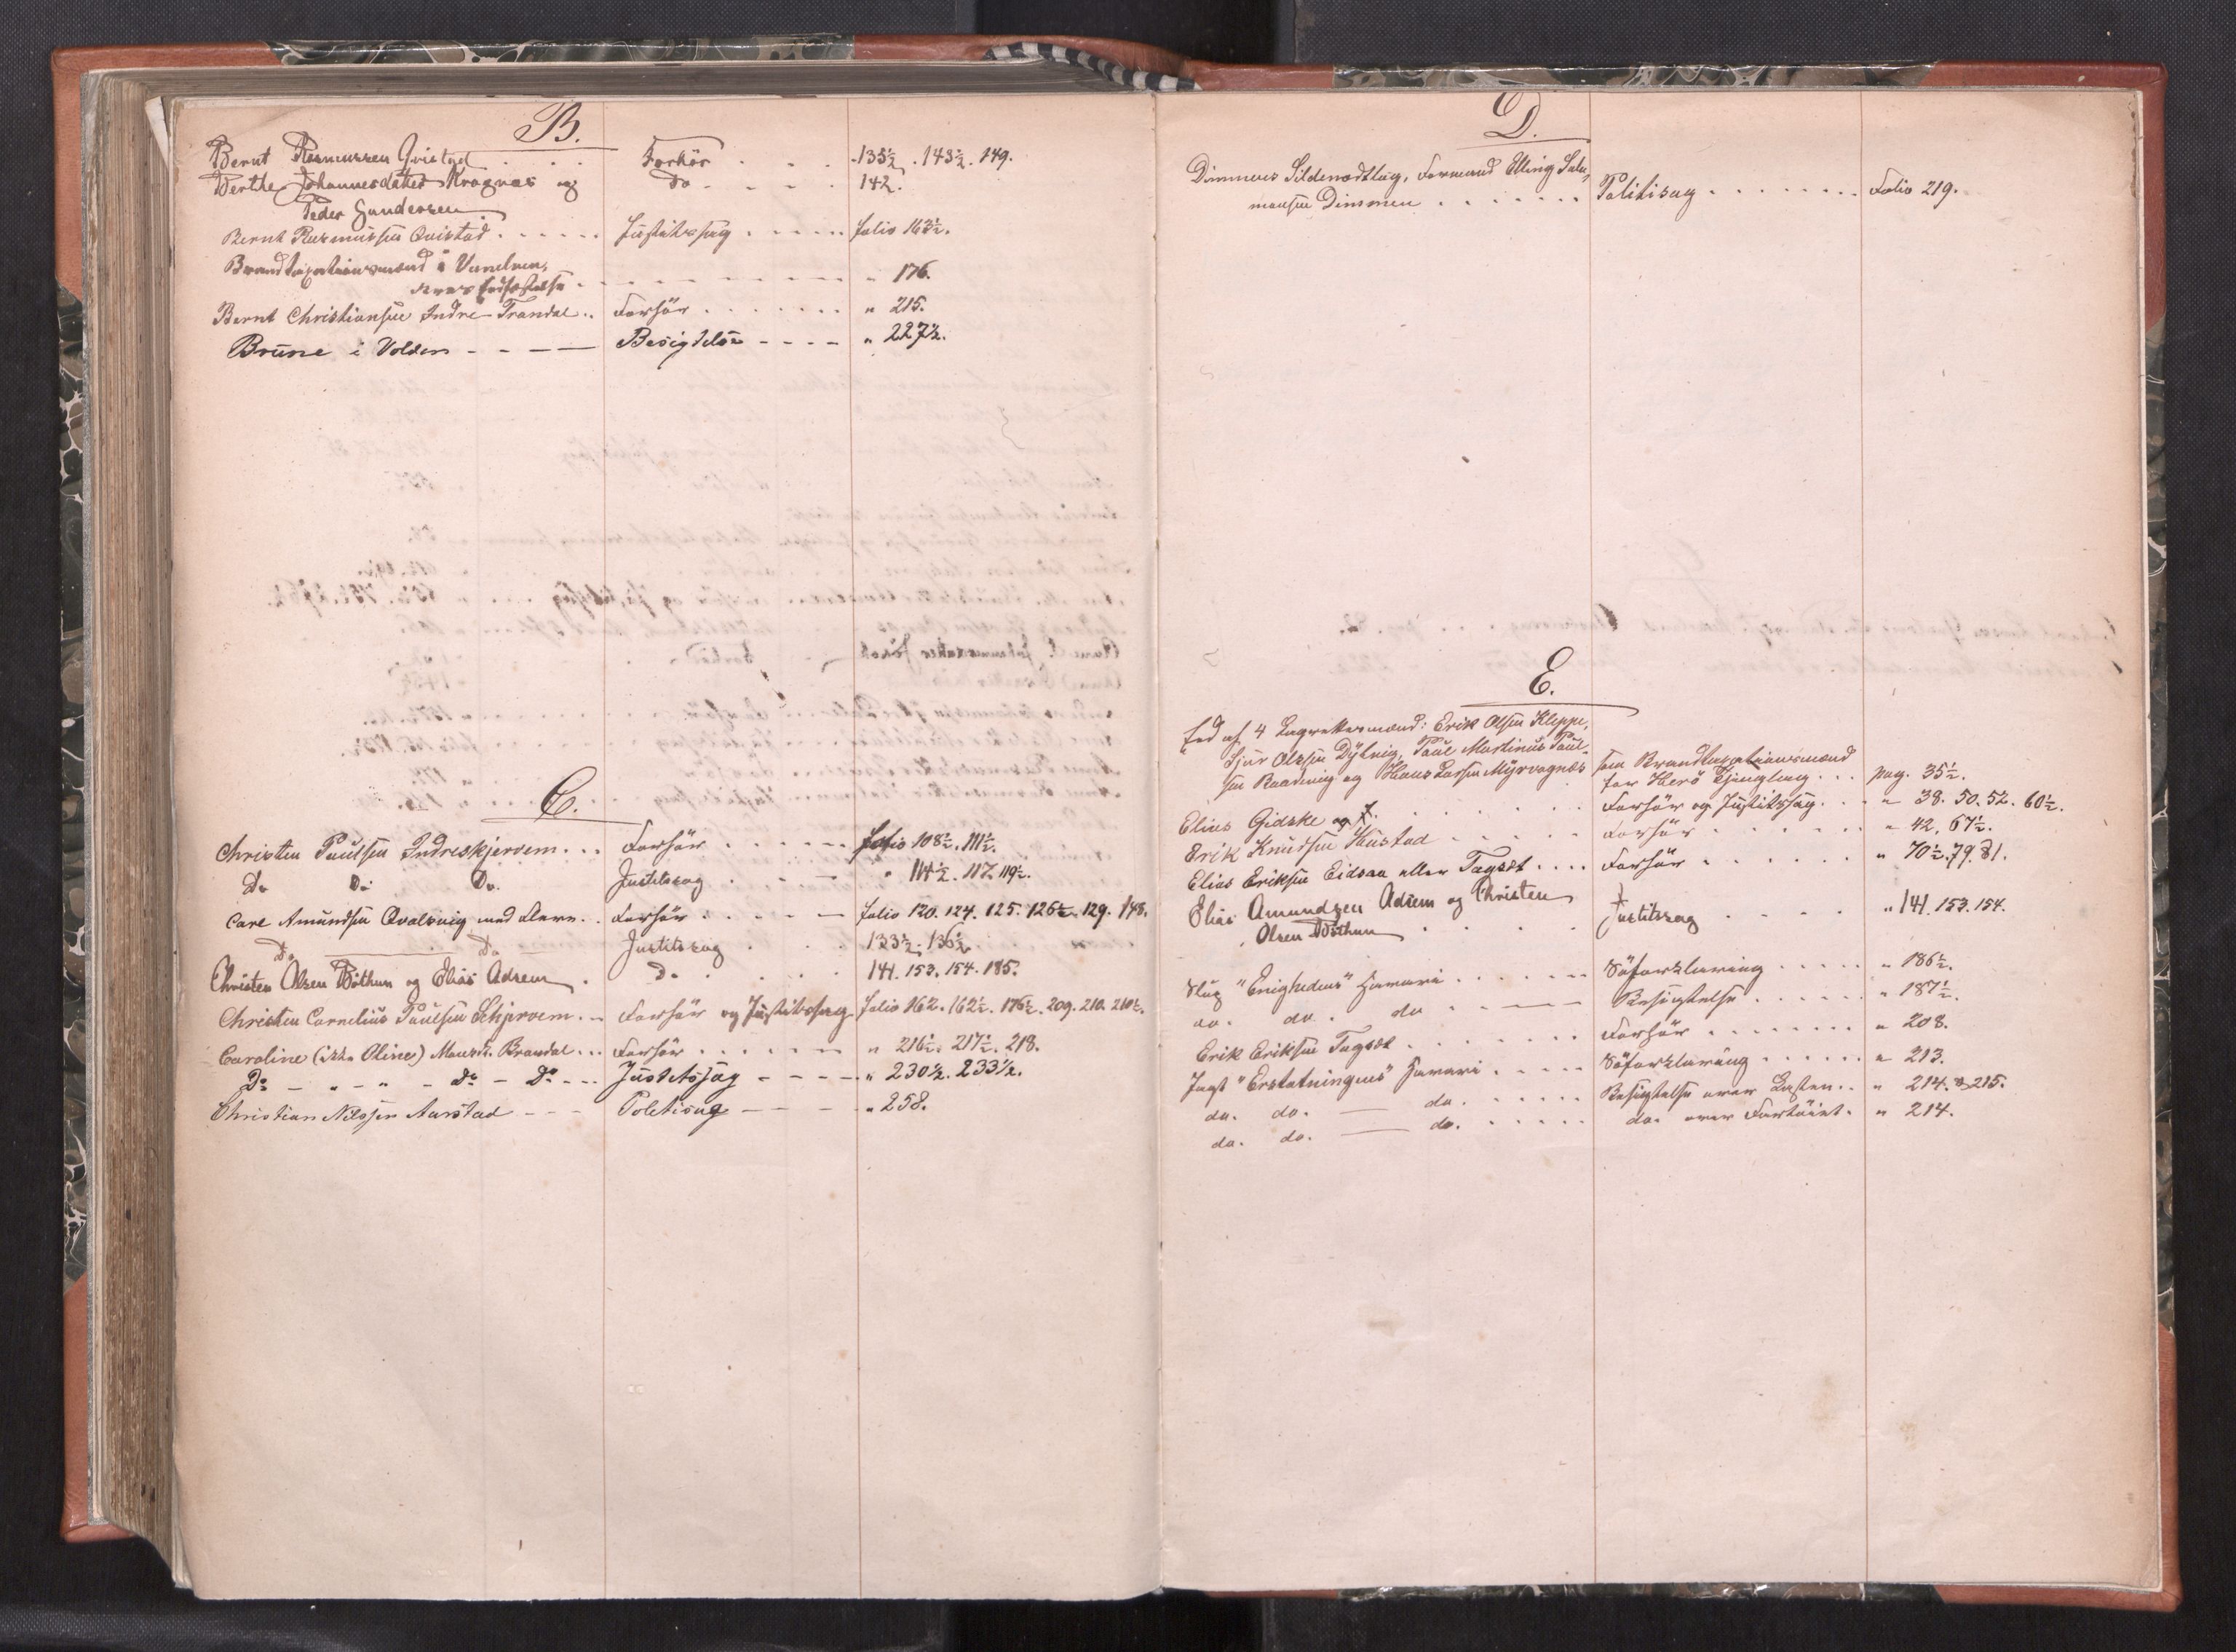 B.
Bernt Rasmussen Qvistad . . . Forhör . . . 135½. 143½. 149.
Berthe Johannesdatter Kragnæs og Do . . . 142.
Peder Gundersen
Bernt Rasmussen Qvistad . . . . . Justitssag . . . . . folio 163½.
Brandtaxationsmænd i Vanelven,
deres Edfæstelse . . . . . " 176.
Bernt Christiansen Indre-Trandal . . Forhör . . . . . . . " 215.
Brune i Volden - - - - Besigtelse - - - - " 227½.
C.
Christen Paulsen Indreskjervem . . . Forhör . . . . . folio 108½. 111½.
Do Do Do. Justitssag . . . " 114½. 117. 119½.
Carl Amundsen Qvalsvig med Flere . . Forhör . . . . . folio 120. 124. 125. 126½. 129. 148.
Do Do Justitssag . . . 133½. 136½
Christen Olsen Böthun og Elias Adsem . Do . . . . 141. 153. 154. 185.
Christen Cornelius Paulsen Schjervem . . Forhör og Justitssag folio 162. 162½. 176½. 209. 210. 210½.
Caroline (ikke Oline) Monsdr. Brandal . . . Forhör . . . . . . " 216½. 217½. 218.
Do - " - " - Do - Do - - - Justitssag - - - - " 230½. 233½.
Christian Nilssen Aarstad - - - Politisag - - - - " 258.
D.
Dimmens Sildenodtlag, Formand Elling Salo-
monsen Dimmen . . . . . . . Politisag . . . . . . . . Folio 219.
E.
Ed af 4 Lagrettesmænd: Erik Olsen Kleppe,
Sjur Olssen Dybvig, Paul Martinus Paul-
sen Raadvig og Hans Larsen Myrvognæs som Brandtaxationsmænd
for Herö Thinglag . . . pag. 35½.
Elias Gidske og fl. . . . . . . Forhör og Justitssag . . . " 38. 50. 52. 60½.
Erik Knudsen Hustad . . . . . Forhör . . . . . . . " 42. 67½.
Elias Eriksen Eidsaa eller Tagset . . . . Forhör . . . . . . " 70½. 79. 81.
Elias Amundsen Adsem og Christen
Olsen Böthun . . . . . Justitssag . . . . " 141. 153. 154.
Slup "Enighedens" Havari . . . . . . Söforklaring . . . . . " 186½.
do. do. do . . . — Besigtelse . . . . . . " 187½.
Erik Eriksen Tagset . . . . . . . . Forhör . . . . . . . . " 208.
Jagt "Erstatningens" Havari . . . . . Söforklaring . . . . . . " 213.
do. do. — do. . . . . . . Besigtelse over Lasten . . " 214. & 215.
do. do. — do. . . . . . do. over Fartöiet . " 214.